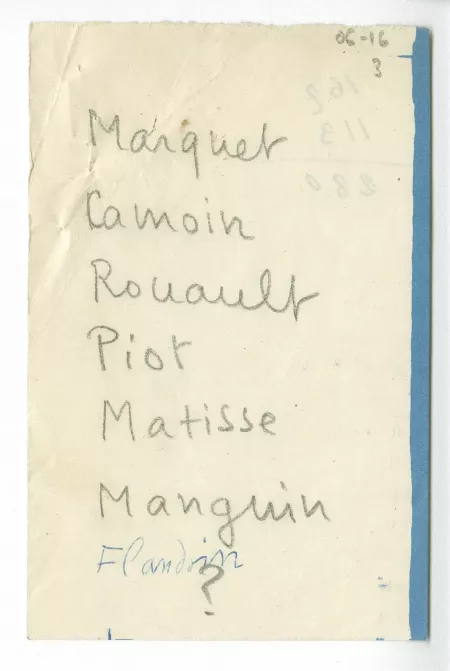 06-16
3
Marquet
Camoin
Rouault
Piot
Matisse
Manguin
Flandrin
?